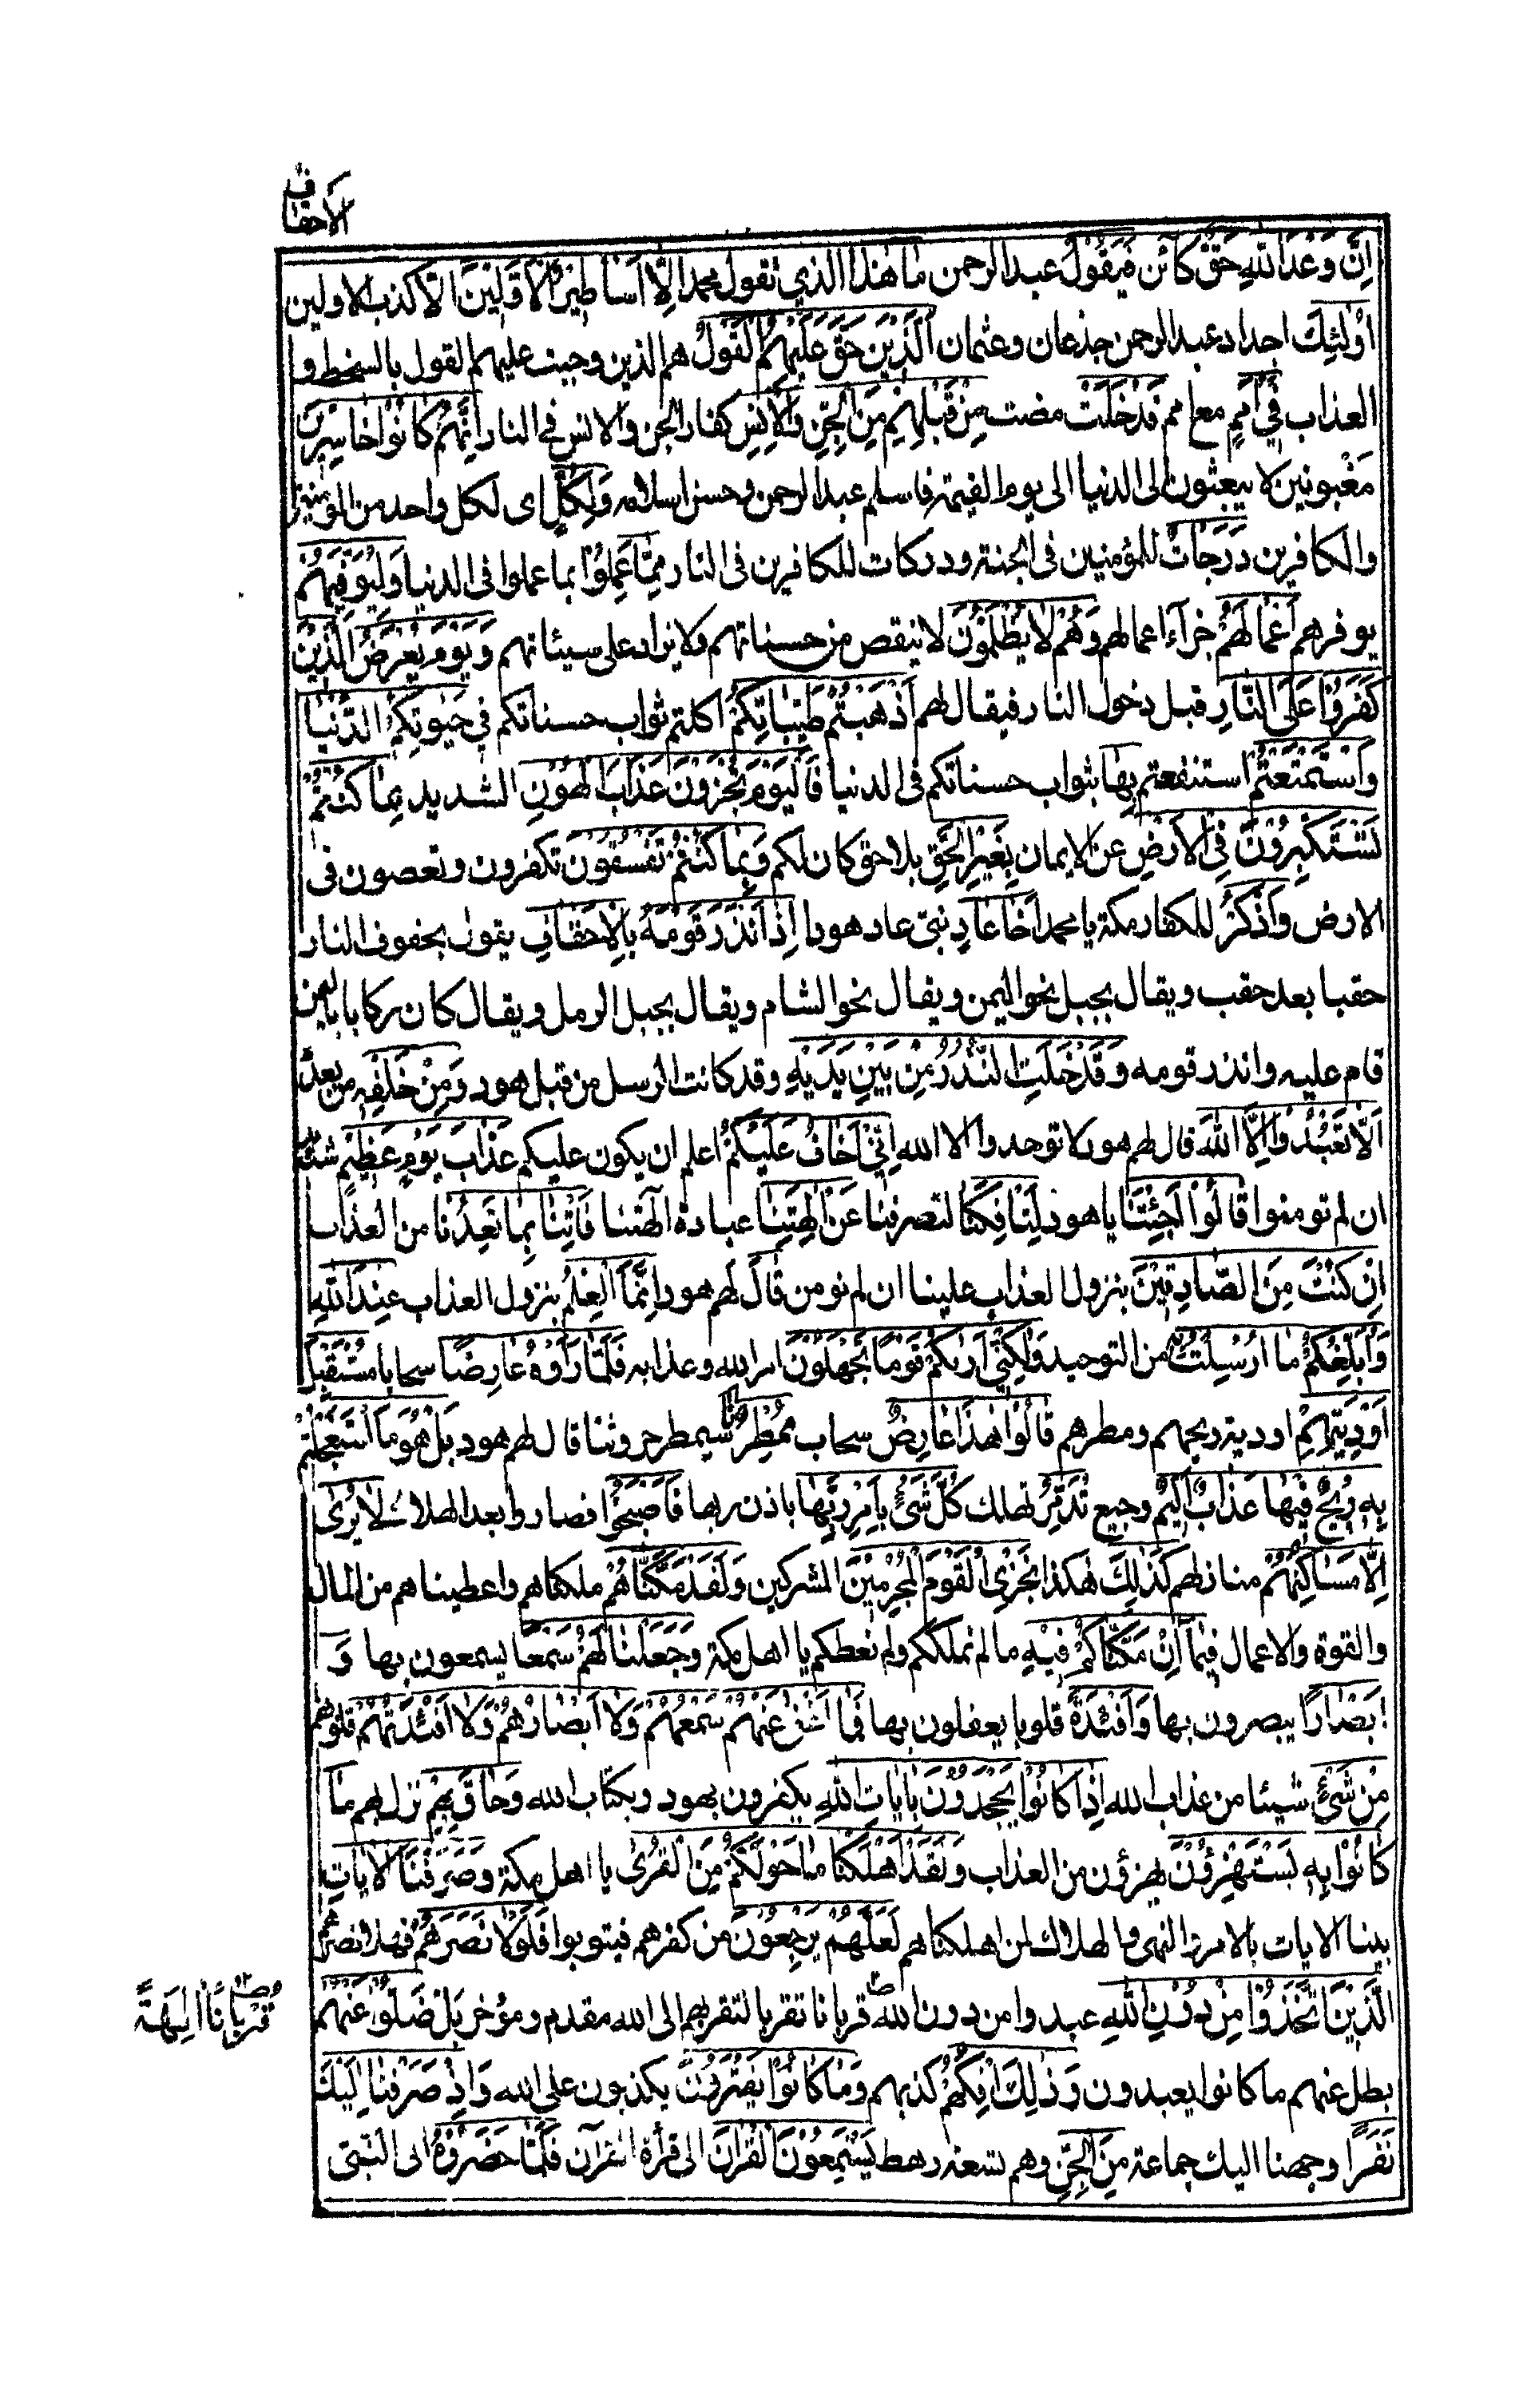 الاحقاف
اِنَّ وَعْدَ اللّٰهِ حَقٌّ كائن فَيَقُولُ عبد الرحمن مَا هٰذَا الذي تقول محمد اِلَّا اَسَاطِيْرُ الْاَوَّلِيْنَ الا كذب الاولين
اُولٰئِكَ اجداد عبد الرحمن جذعان وعثمان الَّذِيْنَ حَقَّ عَلَيْهِمُ الْقَوْلُ هم الذين وجبت عليهم القول بالسخط و
العذاب فِيْ اُمَمٍ مع امم قَدْ خَلَتْ مضت مِنْ قَبْلِهِمْ مِنَ الْجِنِّ وَالْاِنْسِ كفار الجن والانس في النار اِنَّهُمْ كَانُوْا خَاسِرِيْنَ
مَغْبونين لا يبعثون الى الدنيا الى يوم القيمة فاسلم عبد الرحمن وحسن اسلامه وَلِكُلٍّ اى لكل واحد من المؤمنين
والكافرين دَرَجَاتٌ للمؤمنين فى الجنة ودركات للكافرين فى النار مِمَّا عَمِلُوْا بما عملوا فى الدنيا وَلِيُوَفِّيَهُمْ
يوفرهم اَعْمَالَهُمْ جزآء اعمالهم وَهُمْ لَا يُظْلَمُوْنَ لا ينقص من حسناتهم ولا يزاد على سيئاتهم وَيَوْمَ يُعْرَضُ الَّذِيْنَ
كَفَرُوْا عَلَى النَّارِ قبل دخول النار فيقال لهم اَذْهَبْتُمْ طَيِّبَاتِكُمْ اكلتم ثواب حسناتكم فِيْ حَيٰوتِكُمُ الدُّنْيَا
وَاسْتَمْتَعْتُمْ استنفعتم بِهَا بثواب حسناتكم فى الدنيا فَالْيَوْمَ تُجْزَوْنَ عَذَابَ الْهُوْنِ الشديد بِمَا كُنْتُمْ
تَسْتَكْبِرُوْنَ فِى الْاَرْضِ عن الايمان بِغَيْرِ الْحَقِّ بلا حق كان لكم وَبِمَا كُنْتُمْ تَفْسُقُوْنَ تكفرون وتعصون فى
الارض وَاذْكُرْ للكفار مكة يا محمد اَخَا عَادٍ نبىّ عاد هودا اِذْ اَنْذَرَ قَوْمَهُ بِالْاَحْقَافِ يقول بحقوف النار
حقبا بعد حقب ويقال بجبل نحو اليمن ويقال نحو الشام ويقال بجبل الرمل ويقال كان ركايا باليمن
قام عليه وانذر قومه وَقَدْ خَلَتِ النُّذُرُ مِنْ بَيْنِ يَدَيْهِ وقد كانت الرسل من قبل هود وَمِنْ خَلْفِهٖ من بعده
اَلَّا تَعْبُدُوْا اِلَّا اللّٰهَ قال لهم هود لا توحدوا الا الله اِنِّيْ اَخَافُ عَلَيْكُمْ اعلم ان يكون عليكم عَذَابَ يَوْمٍ عَظِيْمٍ شديد
ان لم تومنوا قَالُوْا اَجِئْتَنَا يا هود لِتَاْفِكَنَا لتصرفنا عَنْ اٰلِهَتِنَا عبادة الهتنا فَاْتِنَا بِمَا تَعِدُنَا من العذاب
اِنْ كُنْتَ مِنَ الصَّادِقِيْنَ بنزول العذاب علينا ان لم نومن قَالَ لهم هود اِنَّمَا الْعِلْمُ بنزول العذاب عِنْدَ اللّٰهِ
وَاُبَلِّغُكُمْ مَا اُرْسِلْتُ من التوحيد وَلٰكِنِّيْ اَرٰىكُمْ قَوْمًا تَجْهَلُوْنَ امر الله وعذابه فَلَمَّا رَاَوْهُ عَارِضًا سحابا مُسْتَقْبِلَ
اَوْدِيَتِهِمْ اودية ريحهم ومطرهم قَالُوْا هٰذَا عَارِضٌ سحاب مُمْطِرُنَا سيمطر حروثنا قال لهم هود بَلْ هُوَ مَا اسْتَعْجَلْتُمْ
بِهٖ رِيْحٌ فِيْهَا عَذَابٌ اَلِيْمٌ وجيع تُدَمِّرُ تهلك كُلَّ شَيْءٍ بِاَمْرِ رَبِّهَا باذن ربها فَاَصْبَحُوْا فصاروا بعد الهلاك لَا يُرٰى
اِلَّا مَسَاكِنُهُمْ منازلهم كَذٰلِكَ هكذا نَجْزِى الْقَوْمَ الْمُجْرِمِيْنَ المشركين وَلَقَدْ مَكَّنَّاهُمْ ملكناهم واعطيناهم من المال
والقوة والاعمال فِيْمَا اِنْ مَكَّنَّاكُمْ فِيْهِ ما لم نملككم ولم نعطكم يا اهل مكة وَجَعَلْنَا لَهُمْ سَمْعًا يسمعون بها وَ
اَبْصَارًا يبصرون بها وَاَفْئِدَةً قلوبا يعقلون بها فَمَا اَغْنٰى عَنْهُمْ سَمْعُهُمْ وَلَا اَبْصَارُهُمْ وَلَا اَفْئِدَتُهُمْ قلوبهم
مِنْ شَيْءٍ شيئا من عذاب الله اِذْ كَانُوْا يَجْحَدُوْنَ بِاٰيَاتِ اللّٰهِ يكفرون بهود وبكتاب الله وَحَاقَ بِهِمْ نزل بهم مَا
كَانُوْا بِهٖ يَسْتَهْزِءُوْنَ يهزؤن من العذاب وَلَقَدْ اَهْلَكْنَا مَا حَوْلَكُمْ مِنَ الْقُرٰى يا اهل مكة وَصَرَّفْنَا الْاٰيَاتِ
بينا الايات بالامر والنهى والهلاك لمن اهلكناهم لَعَلَّهُمْ يَرْجِعُوْنَ من كفرهم فيتوبوا فَلَوْلَا نَصَرَهُمُ فهلا نصرهم
الَّذِيْنَ اتَّخَذُوْا مِنْ دُوْنِ اللّٰهِ عبدوا من دون الله قربانا تقربا لتقربهم الى الله مقدم ومؤخر بَلْ ضَلُّوْا عَنْهُمْ
قُرْبَانًا اٰلِهَةً
بطل عنهم ما كانوا يعبدون وَذٰلِكَ اِفْكُهُمْ كذبهم وَمَا كَانُوْا يَفْتَرُوْنَ يكذبون على الله وَاِذْ صَرَفْنَا اِلَيْكَ
نَفَرًا وجهنا اليك جماعة مِنَ الْجِنِّ وهم تسعة رهط يَسْتَمِعُوْنَ الْقُرْاٰنَ الى قراة القرآن فَلَمَّا حَضَرُوْهُ اى النبى